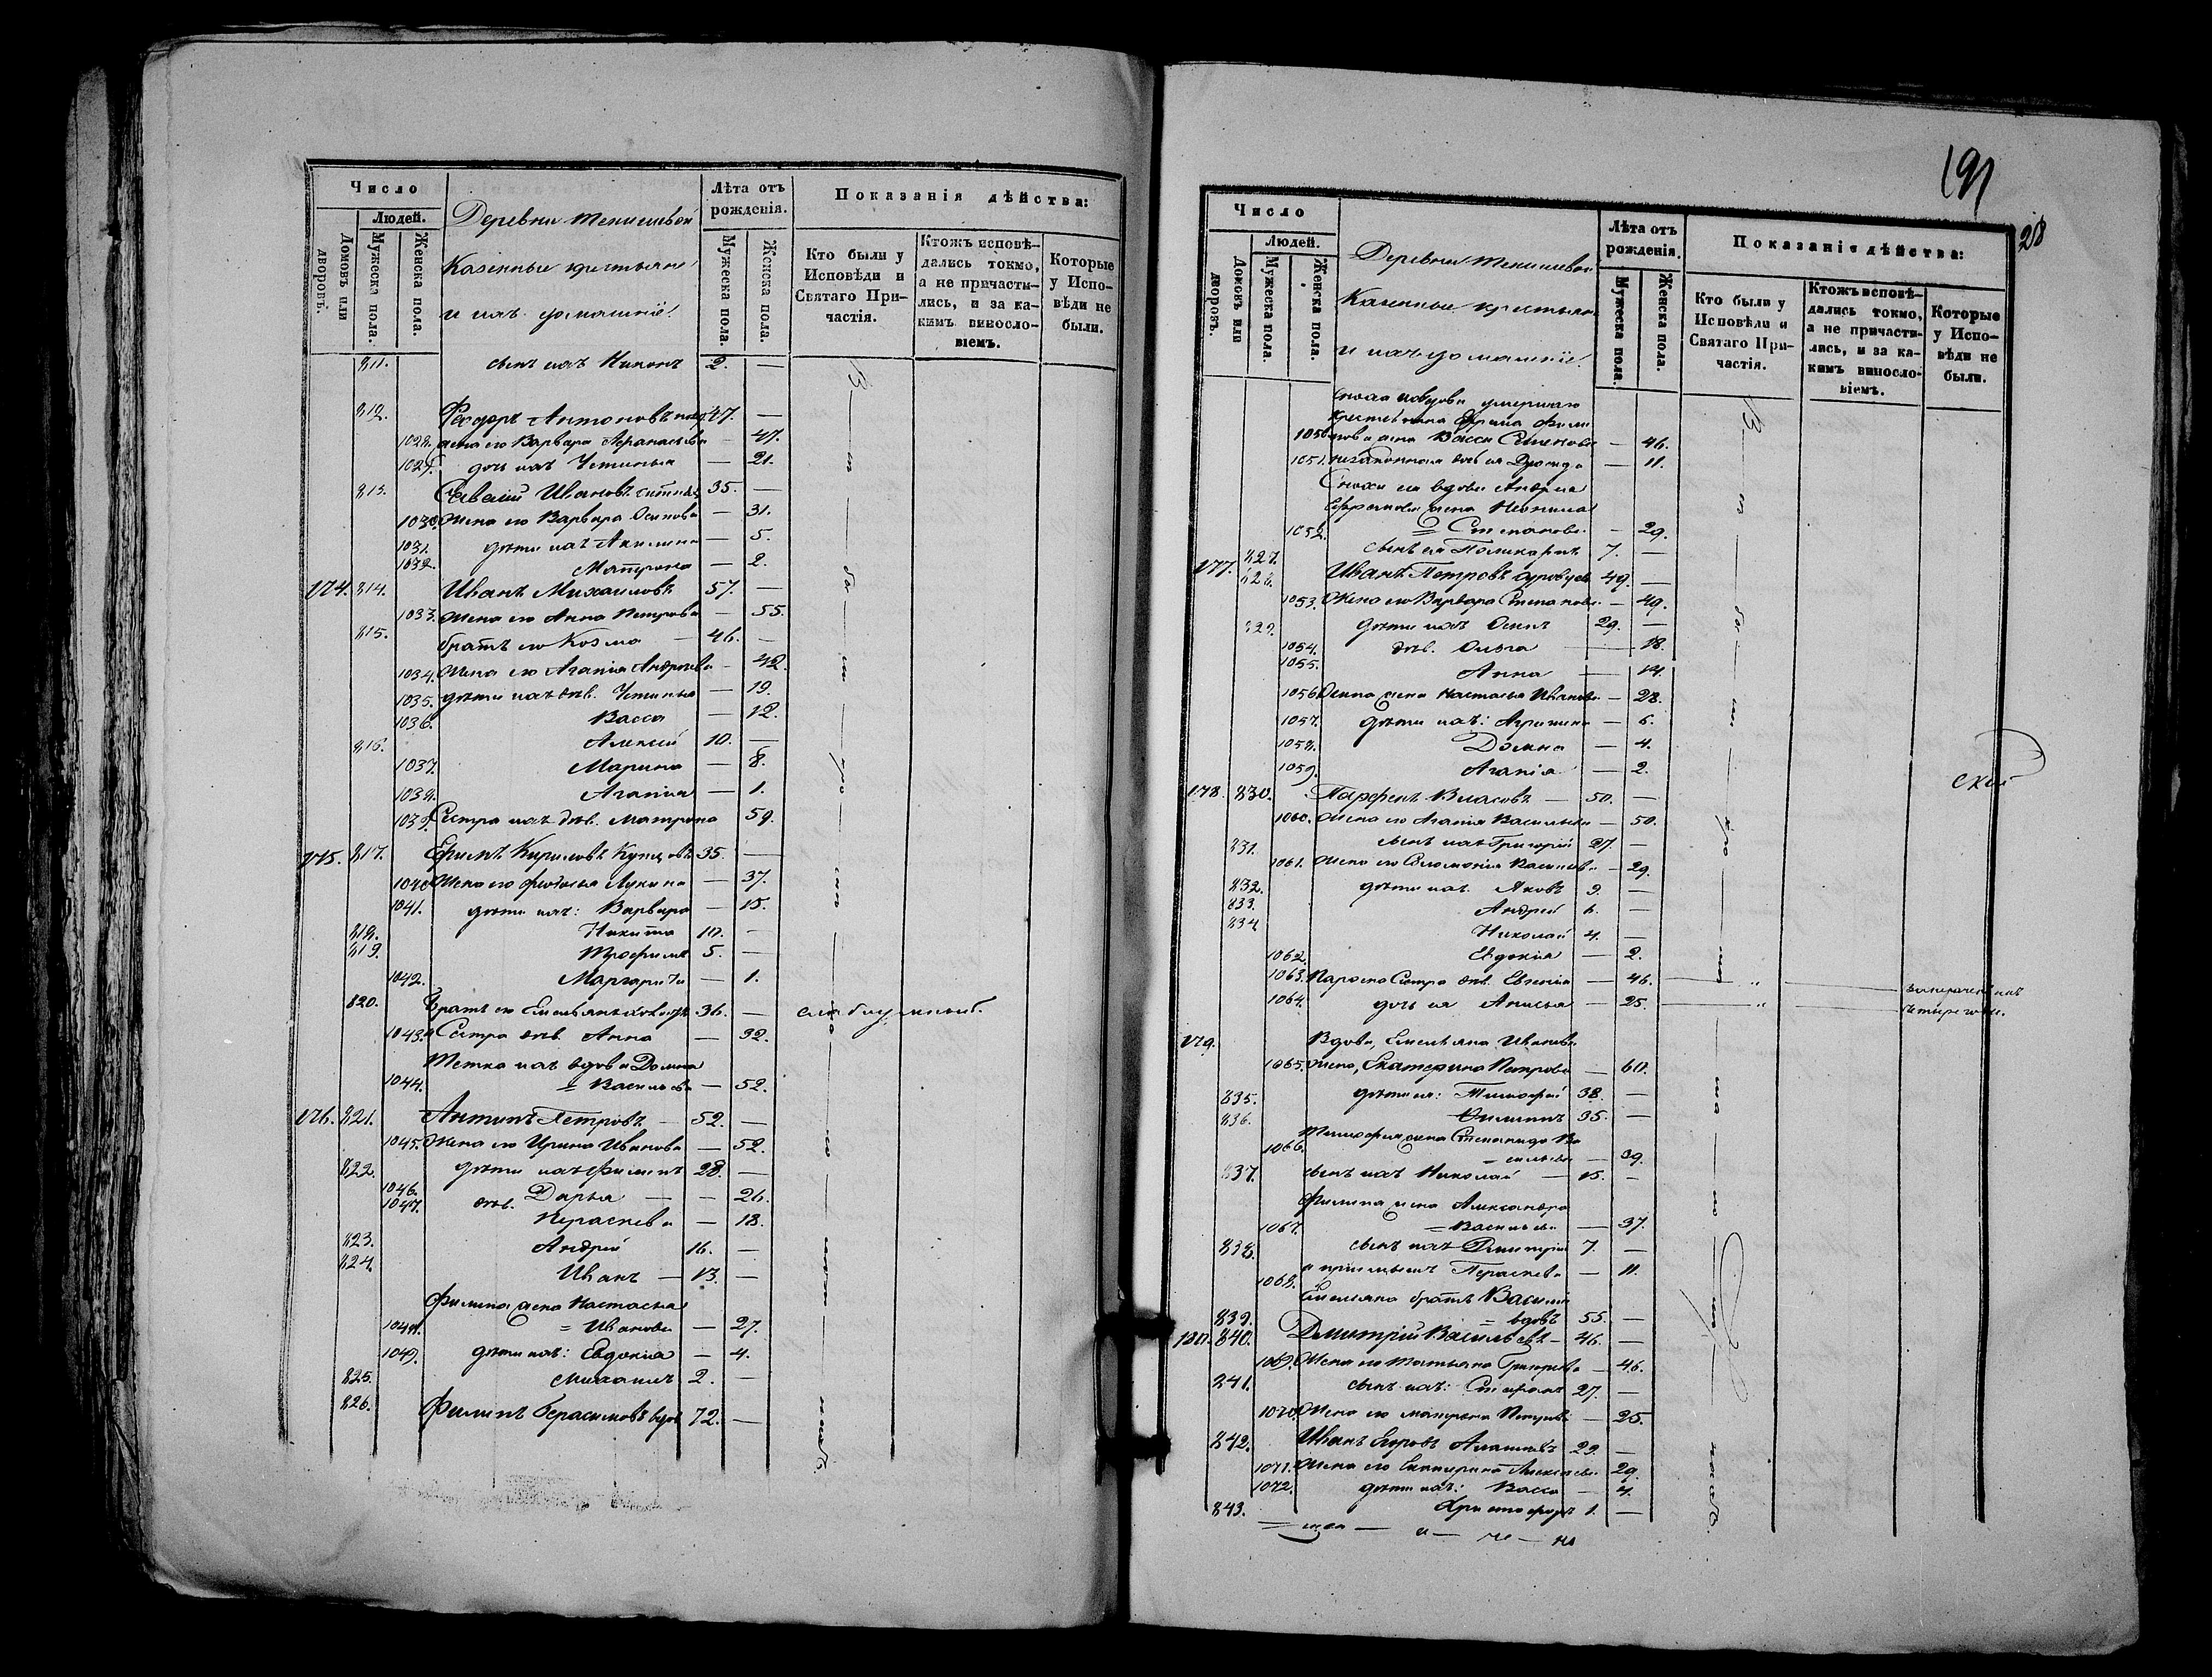 Число
Людей.
Домовъ или дворовъ.
Мужеска пола.
Женска пола.
Деревни
Казенные крестьяне
и ихъ домашніе.
Лѣта отъ рожденія.
Мужеска пола.
Женска пола.
Показанія дѣйства:
Кто были у Исповѣди и Святаго Причастія.
Ктожъ исповѣдались токмо, а не причастились, и за какимъ винословіемъ.
Которые у Исповѣди не были.
811. сынъ ихъ Никонъ 2. —
812. Ѳедоръ Антоновъ 47. —
1028. жена его Варвара Афанасьева — 47.
1029. дочь ихъ Устинья — 21.
813. Савелій Ивановъ 35. —
1030. Жена его Варвара Осипова — 31.
1031. дѣти ихъ Акилина — 5.
1032. Матрона — 2.
174. 814. Иванъ Михаиловъ 57. —
1033. Жена его Анна Петрова — 55.
815. братъ его Козма — 46. —
1034. Жена его Агапія Андреева — 42.
1035. дѣти ихъ дѣв. Устинья — 19.
1036. Васса — 12.
816. Алексѣй 10. —
1037. Марина — 8.
1038. Агапія — 1.
1039. Сестра ихъ дѣв. Матрона 59.
175. 817. Ефимъ Кириловъ Купцовъ 35. —
1040. Жена его Феодосья Лукина — 37.
1041. дѣти ихъ: Варвара — 15.
818. Никита 10. —
819. Трофимъ 5. —
1042. Маргарита — 1.
820. Братъ его Емельянъ холостъ 36. — слабоумный.
1043. Сестра дѣв. Анна — 32.
Тетка ихъ вдова Домна
1044. = Васильева — 52.
176. 821. Антипъ Петровъ — 52. —
1045. Жена его Ирина Иванова — 52.
822. дѣти ихъ Филипъ 28. —
1046. дѣв. Дарья — — 26.
1047. Параскева — 18.
823. Андрей 16. —
824. Иванъ — 13. —
Филипа жена Настасья
1048. = Иванова — 27.
1049. дѣти ихъ: Евдокія — 4.
825. Михаилъ 2. —
826. Филипъ Герасимовъ вдов 72. —
191
28
Число
Людей.
Домовъ или дворовъ.
Мужеска пола.
Женска пола.
Деревни
Казенные крестьяне
и ихъ домашніе.
Лѣта отъ рожденія.
Мужеска пола.
Женска пола.
Показанія дѣйства:
Кто были у Исповѣди и Святаго Причастія.
Ктожъ исповѣдались токмо, а не причастились, и за какимъ винословіемъ.
Которые у Исповѣди не были.
вдова умершаго
крестьянина
1050. жена Васса Семенова — 46.
1051. незаконная дочь ея — 11.
Сноха ея вдова Андрея
Ефремова жена
1052. = Степанова — 29.
827. сынъ ея Поликарпъ 7. —
177. 828. Иванъ Петровъ 49. —
1053. Жена его Варвара Степанова — 49.
829. дѣти ихъ Осипъ 29. —
1054. дѣв. Ольга — 18.
1055. Анна — 14.
1056. Осипа жена Настасья Иванова — 28.
1057. дѣти ихъ: Агрипина — 6.
1058. Домна — 4.
1059. Агапія — 2.
178. 830. Парфенъ Власовъ — 50. —
1060. Жена его Агапія Васильева — 50.
831. сынъ ихъ Григорій 27. —
1061. Жена его Соломонія — 29.
832. дѣти ихъ. Яковъ 9. —
833. Андрей 6. —
834. Николай 4. —
1062. Евдокія — 2.
1063. Парфена Сестра дѣв. Евгенія — 46.
1064. дочь ея Анисья — 25.
179. Вдова, Емельяна Иванова
1065. жена, Екатерина Петрова — 60.
835. дѣти ея: Тимофей 38. —
836. Филипъ 35. —
1066. Тимофея жена Степанида Васильева — 39.
837. сынъ ихъ Николай — 15. —
Филипа жена Александра
1067. = Васильева — 37.
838. сынъ ихъ Дмитрій 7. —
1068. и пріемышъ Параскева — 11.
Емельяна братъ Василій
839. = вдовъ 55. —
180. 840. Дмитрій Васильевъ — 46. —
1069. Жена его Татьяна Григорьева — 46.
841. сынъ ихъ: Стефанъ 27. —
1070. Жена его Матрена — 25.
842. Иванъ Егоровъ 29. —
1071. Жена его Екатерина Алексеева 29.
1072. дѣти ихъ: Васса — 4.
843. Христофоръ 1. —